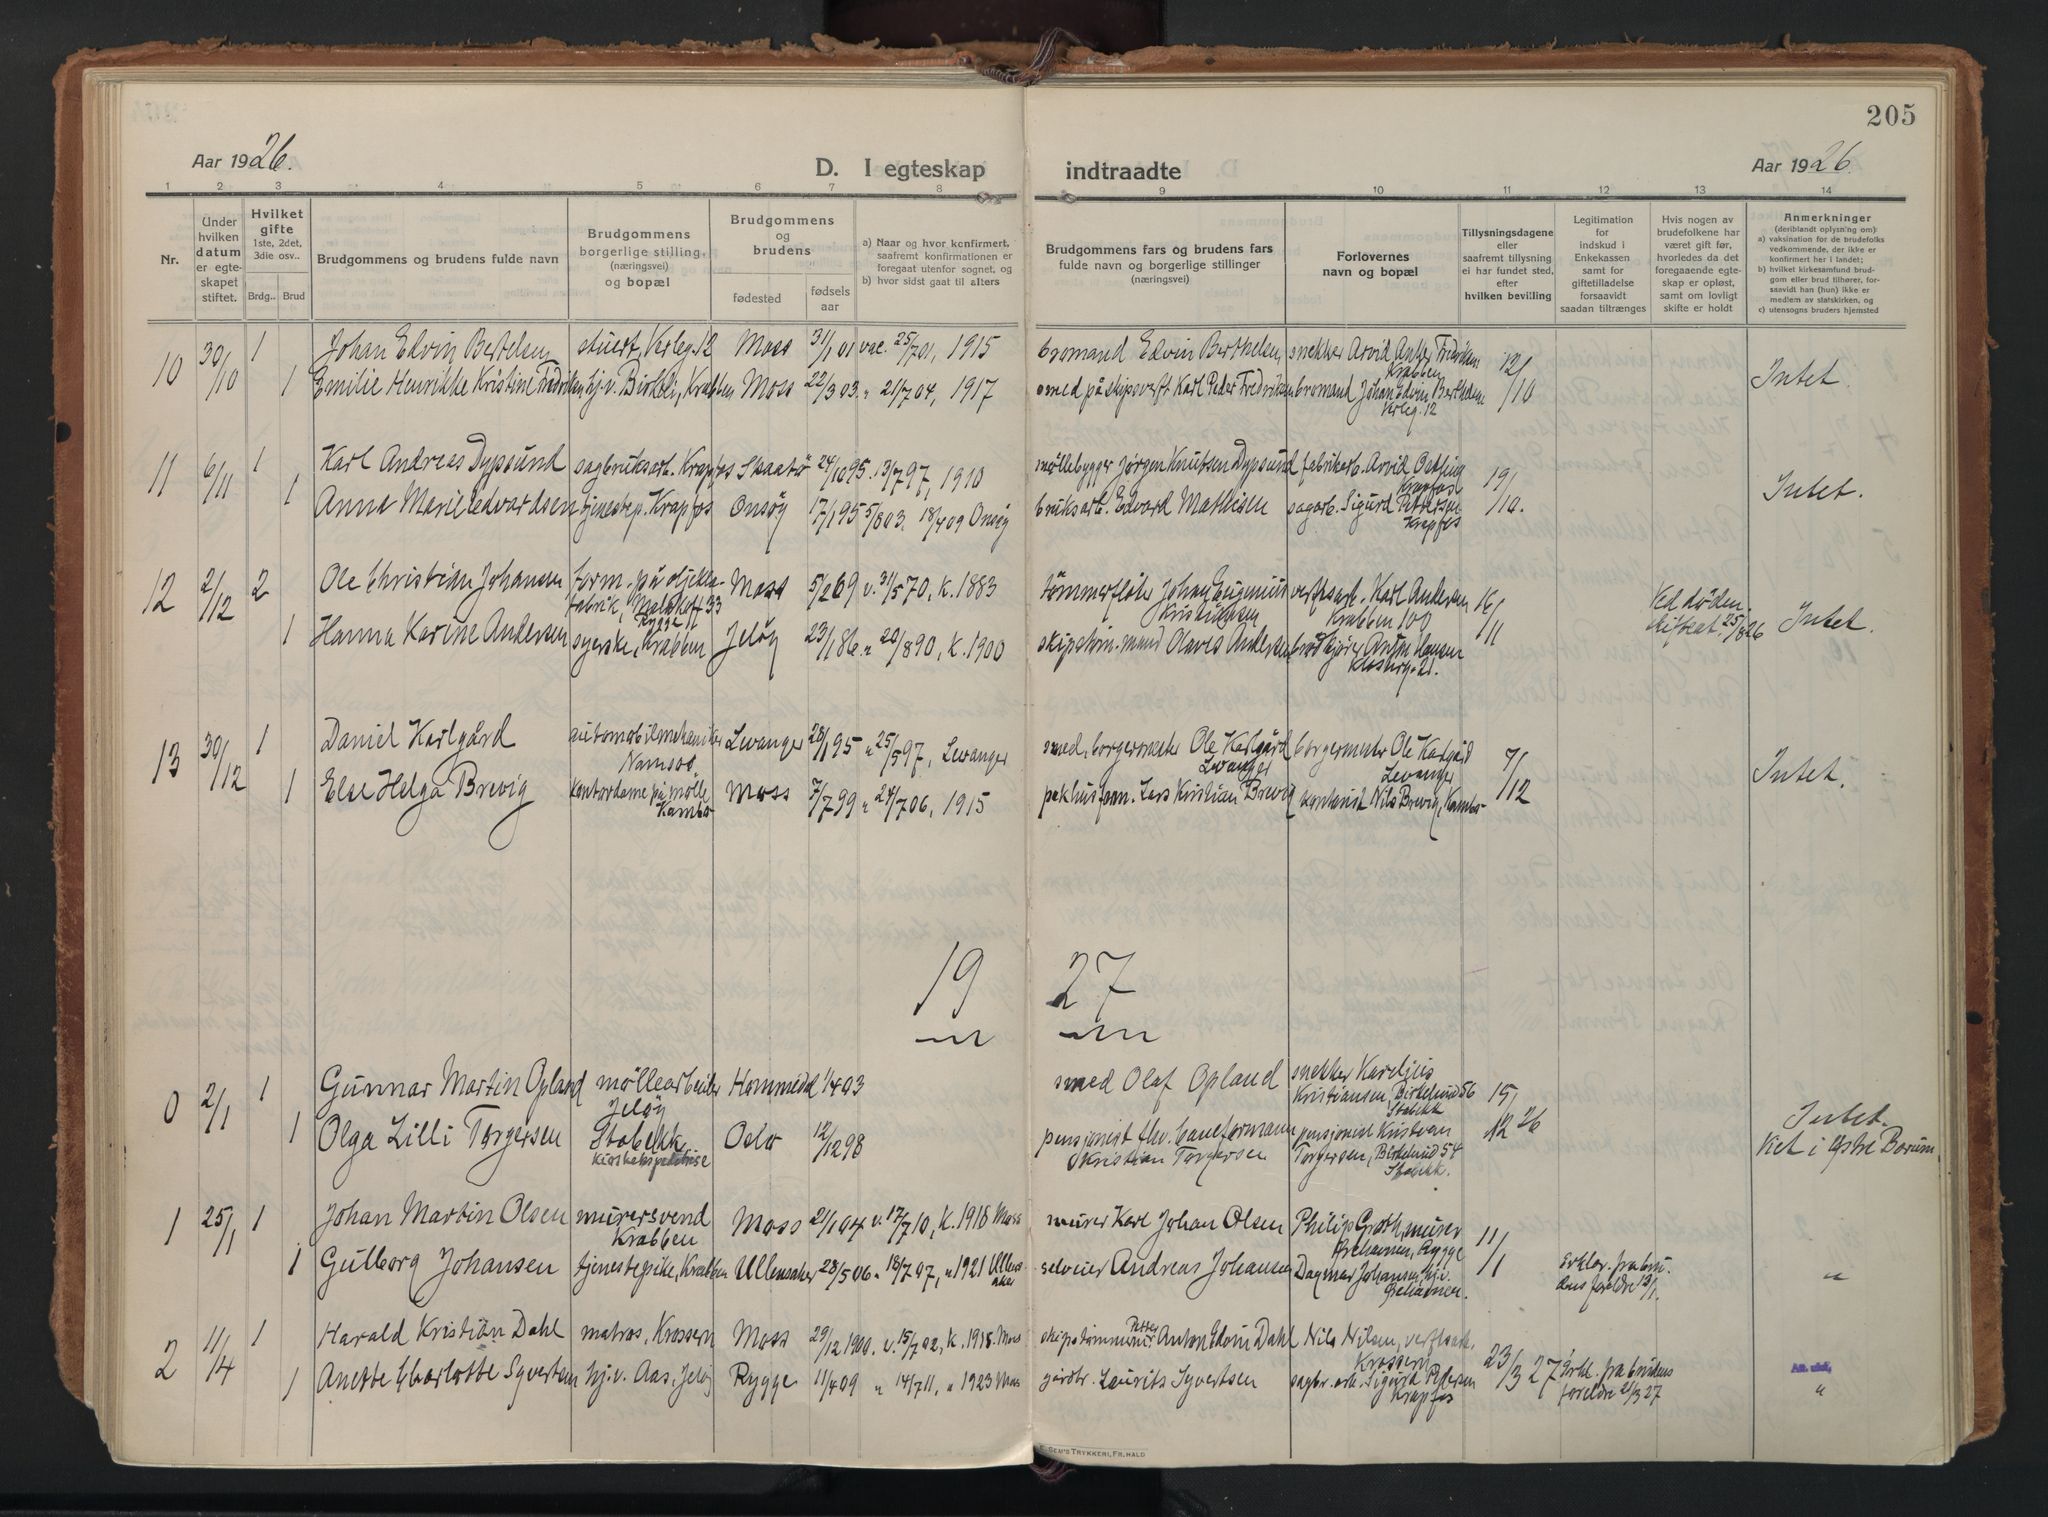 205
Aar 1926.
D. I egteskap
indtraadte
Aar 1926.
1 2 3 4 5 6 7 8 9 10 11 12 13 14
Nr.
Under hvilken datum er egteskapet stiftet.
Hvilket gifte 1ste, 2det, 3die osv..
Brdg.. Brud
Brudgommens og brudens fulde navn
Brudgommens borgerlige stilling, (næringsvei) og bopæl
Brudgommens og brudens
fødested
fødsels aar
a) Naar og hvor konfirmert, saafremt konfirmationen er foregaat utenfor sognet, og
b) hvor sidst gaat til alters
Brudgommens fars og brudens fars fulde navn og borgerlige stillinger (næringsvei)
Forlovernes navn og bopæl
Tillysningsdagene eller saafremt tillysning ei har fundet sted, efter hvilken bevilling
Legitimation for indskud i Enkekassen samt for giftetilladelse forsaavidt saadan tiltrænges
Hvis nogen av brudefolkene har været gift før, hvorledes da det foregaaende egteskap er opløst, samt om lovligt skifte er holdt
Anmerkninger (deriblandt oplysning om):
a) vaksination for de brudefolks vedkommende, der ikke er konfirmert her i landet;
b) hvilket kirkesamfund brudgom eller brud tilhører, forsaavidt han (hun) ikke er medlem av statskirken, og
c) utensogns bruders hjemsted
10 30/10 1 Johan Edvin Bertelsen stuert, Verleg. 12 Moss 31/1 01 vac. 25/7 01, 1915 bromand Edvin Berthelsen, snekker Arvid Anker Fredriksen Krabben 12/10 Intet.
1 Emilie Henrikke Kristine Fredriksen hj.v. Birkeli, Krabben Moss 22/3 03 " 21/7 04, 1917 smed på skipsverft Karl Peder Fredriksen bromand Johan Edvin Berthelsen Verleg. 12
11 6/11 1 Karl Andreas Dypsund sagbruksarb. Krapfos Skaatø 24/10 95. 13/7 97, 1910 møllebygger Jørgen Knutsen Dypsund fabrikarb. Arvid Krapfos 19/10. Intet.
1 Anna Marie Edvardsen tjenestep. Krapfos Onsøy 17/1 95 5/8 03. 18/4 09 Onsøy bruksarb. Edvard Mathisen sagarb. Sigurd Pettersen Krapfos
12 2/12 2 Ole Christian Johansen form. på oljeklæfabrik, Malakoff 33 Rygge Moss 5/2 69 v. 31/5 70, k. 1883 tømmerfløter Johan Eugenius Kristiansen verftsarb. Karl Andersen Krabben 100 16/11 Ved døden. skifteat. 25/8 26 Intet.
1 Hanna Karine Andersen syerske, Krabben Jeløy 23/1 86. " 20/8 90, k. 1900 skipstøm.mand Olaves Andersen brødkjører Anton Hansen Klosterg. 21.
13 30/12 1 Daniel Karlgård automobilmekaniker Namsos Levanger 28/1 95 " 25/5 97, Levanger smed, borgermester Ole Karlgård Levanger borgermester Ole Karlgård Levanger 7/12 Intet.
1 Else Helga Brevig kontordame på mølle Kambo Moss 7/7 99 " 24/7 06, 1915 pakhusform. Lars Kristian Brevig kontorist Nils Brevig, Kambo
19 27
0 2/1 1 Gunnar Martin Opland møllearbeider Jeløy Hommedal 1/4 03 smed Olaf Opland snekker Karelius Kristiansen, Birkelund 56 Stabekk 15/12 26
1 Olga Lilli Torgersen Stabekk Oslo 12/12 98 pensjonist fhv. baneformann Kristian Torgersen pensjonist Kristian Torgersen, Birkelund 54 Stabekk. Intet. Viet i Østre Bærum.
1 25/1 1 Johan Martin Olsen murersvend Krabben Moss 21/1 04 v. 17/7 10, k. 1918 Moss murer Karl Johan Olsen Philip Groth, murer Årehavnen, Rygge 11/1
1 Gulborg Johansen tjenestepike, Krabben Ullensaker 28/5 06 " 18/7 97, " 1921 Ullensaker selveier Andreas Johansen Dagmar Johansen, hj.v. Årehavnen. Erklær. fra brudens foreldre 13/1. "
2 11/4 1 Harald Kristian Dahl matros, Krossern Moss 29/12 1900. v. 15/7 02, k. 1918. Moss skipstømmerm. Petter Anton Edvin Dahl Nils Nilsen, verftsarb. Krossern 23/3 27 Erkl. fra brudens foreldre 21/3 27
1 Anette Charlotte Syvertsen hj.v. Aas, Jeløy Rygge 11/4 09 " 14/7 11, " 1923 Moss gårdbr. Laurits Syvertsen sagbr.arb. Sigurd Pedersen Krapfos "
E. SEM'S TRYKKERI, FR.HALD